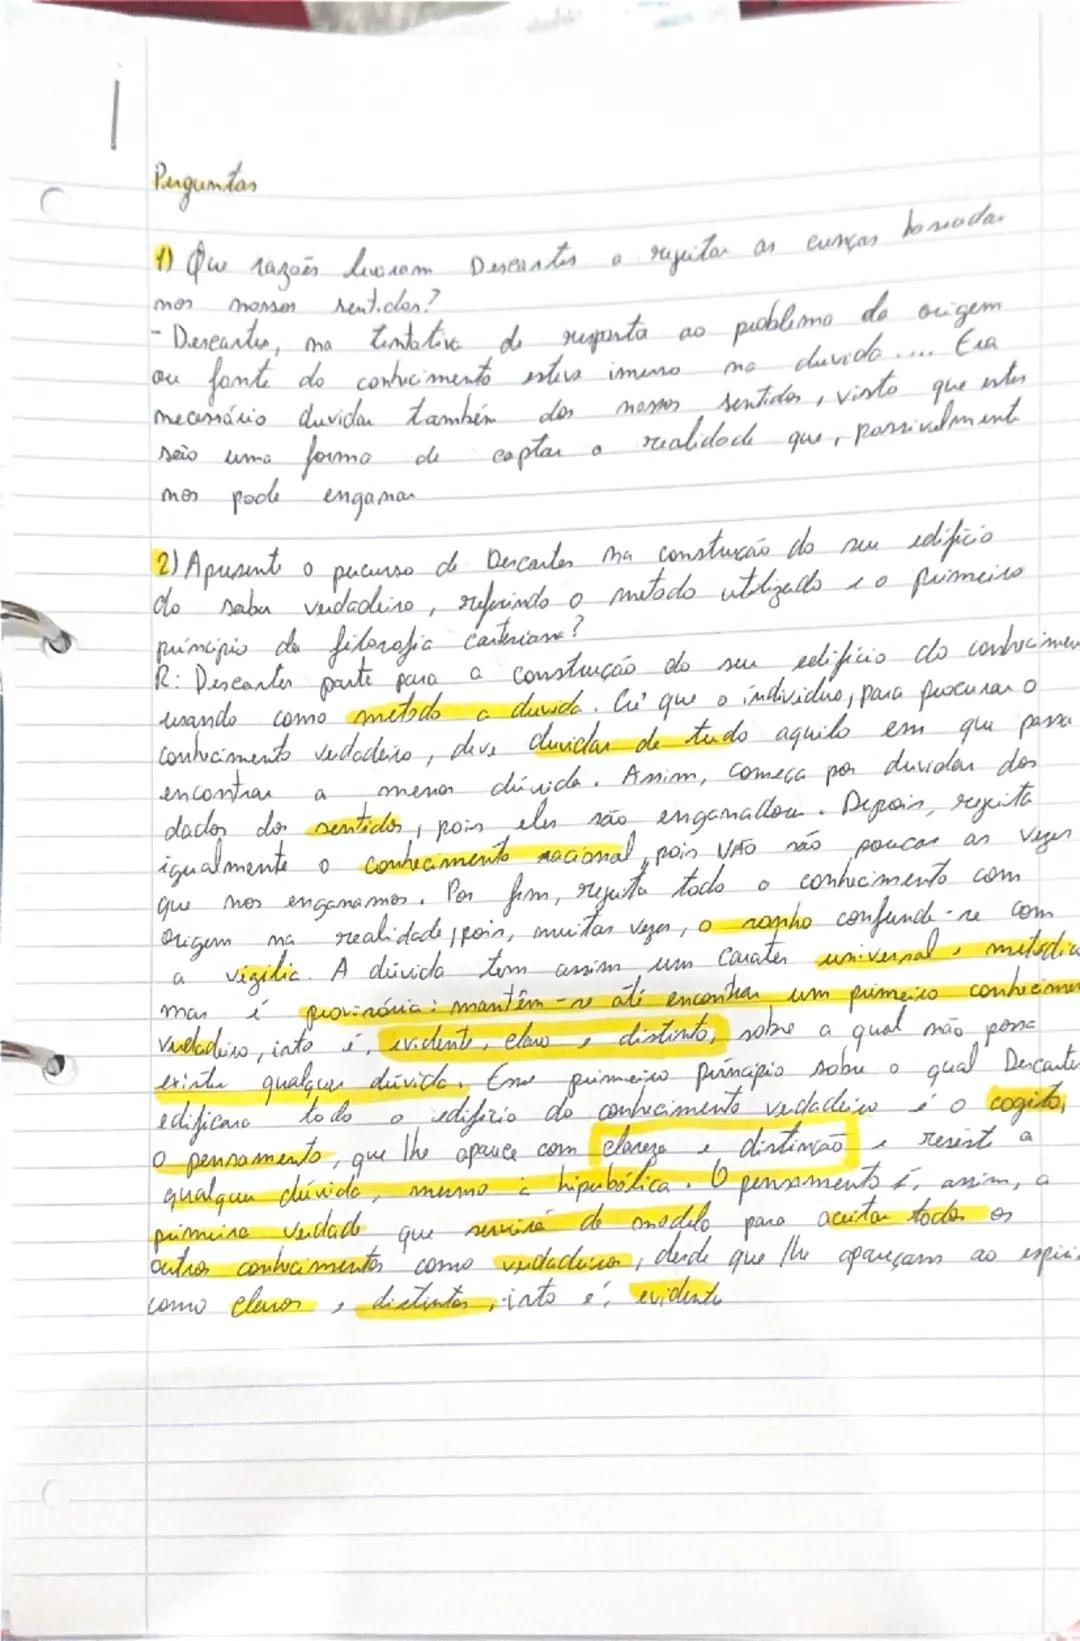 Perguntas
1) Que razões levaram Descartes a rejeitar as crenças baseadas
nos nossos sentidos?
- Descartes, na tentativa de resposta ao problema da origem
ou fonte do conhecimento esteve imerso na duvida .... Era
necessário duvidar também dos nossos sentidos, visto que estes
são uma forma de captar a realidade que, possivelmente
nos pode enganar
2) Apresente o percurso de Descartes na construção do seu edifício
do saber verdadeiro, referindo o metodo utilizado e o primeiro
princípio da filosofia cartesiana?
R: Descartes parte para a construção do seu edifício do conhecimen
usando como metodo a duvida. Crê que o individuo, para procurar o
conhecimento verdadeiro, deve duvidar de tudo aquilo em que possa
encontrar a menor dúvida. Assim, começa por duvidar dos
dados dos sentidos, pois eles são enganadores. Depois, rejeita
igualmente o conhecimento racional, pois não são poucas as vezes
que nos enganamos. Por fim, rejeita todo o conhecimento com
origem na realidade, pois, muitas vezes, o sonho confunde-se com
a vigília. A dúvida tem assim um carater universal e metódica
mas é provisória: mantêm-se até encontrar um primeiro conhecimen
verdadeiro, isto é, evidente, claro e distinto, sobre a qual não possa
existir qualquer dúvida. Esse primeiro princípio sobre o qual Descartes
edificara todo o edifício do conhecimento verdadeiro é o cogito,
o pensamento, que lhe aparece com clareza e distinção e resiste a
qualquer dúvida, mesmo à hiperbólica. O pensamento é, assim, a
primeira verdade que servirá de modelo para aceitar todos os
outros conhecimentos como verdadeiros, desde que lhe apareçam ao espiri
como claros e distintos, isto é, evidente